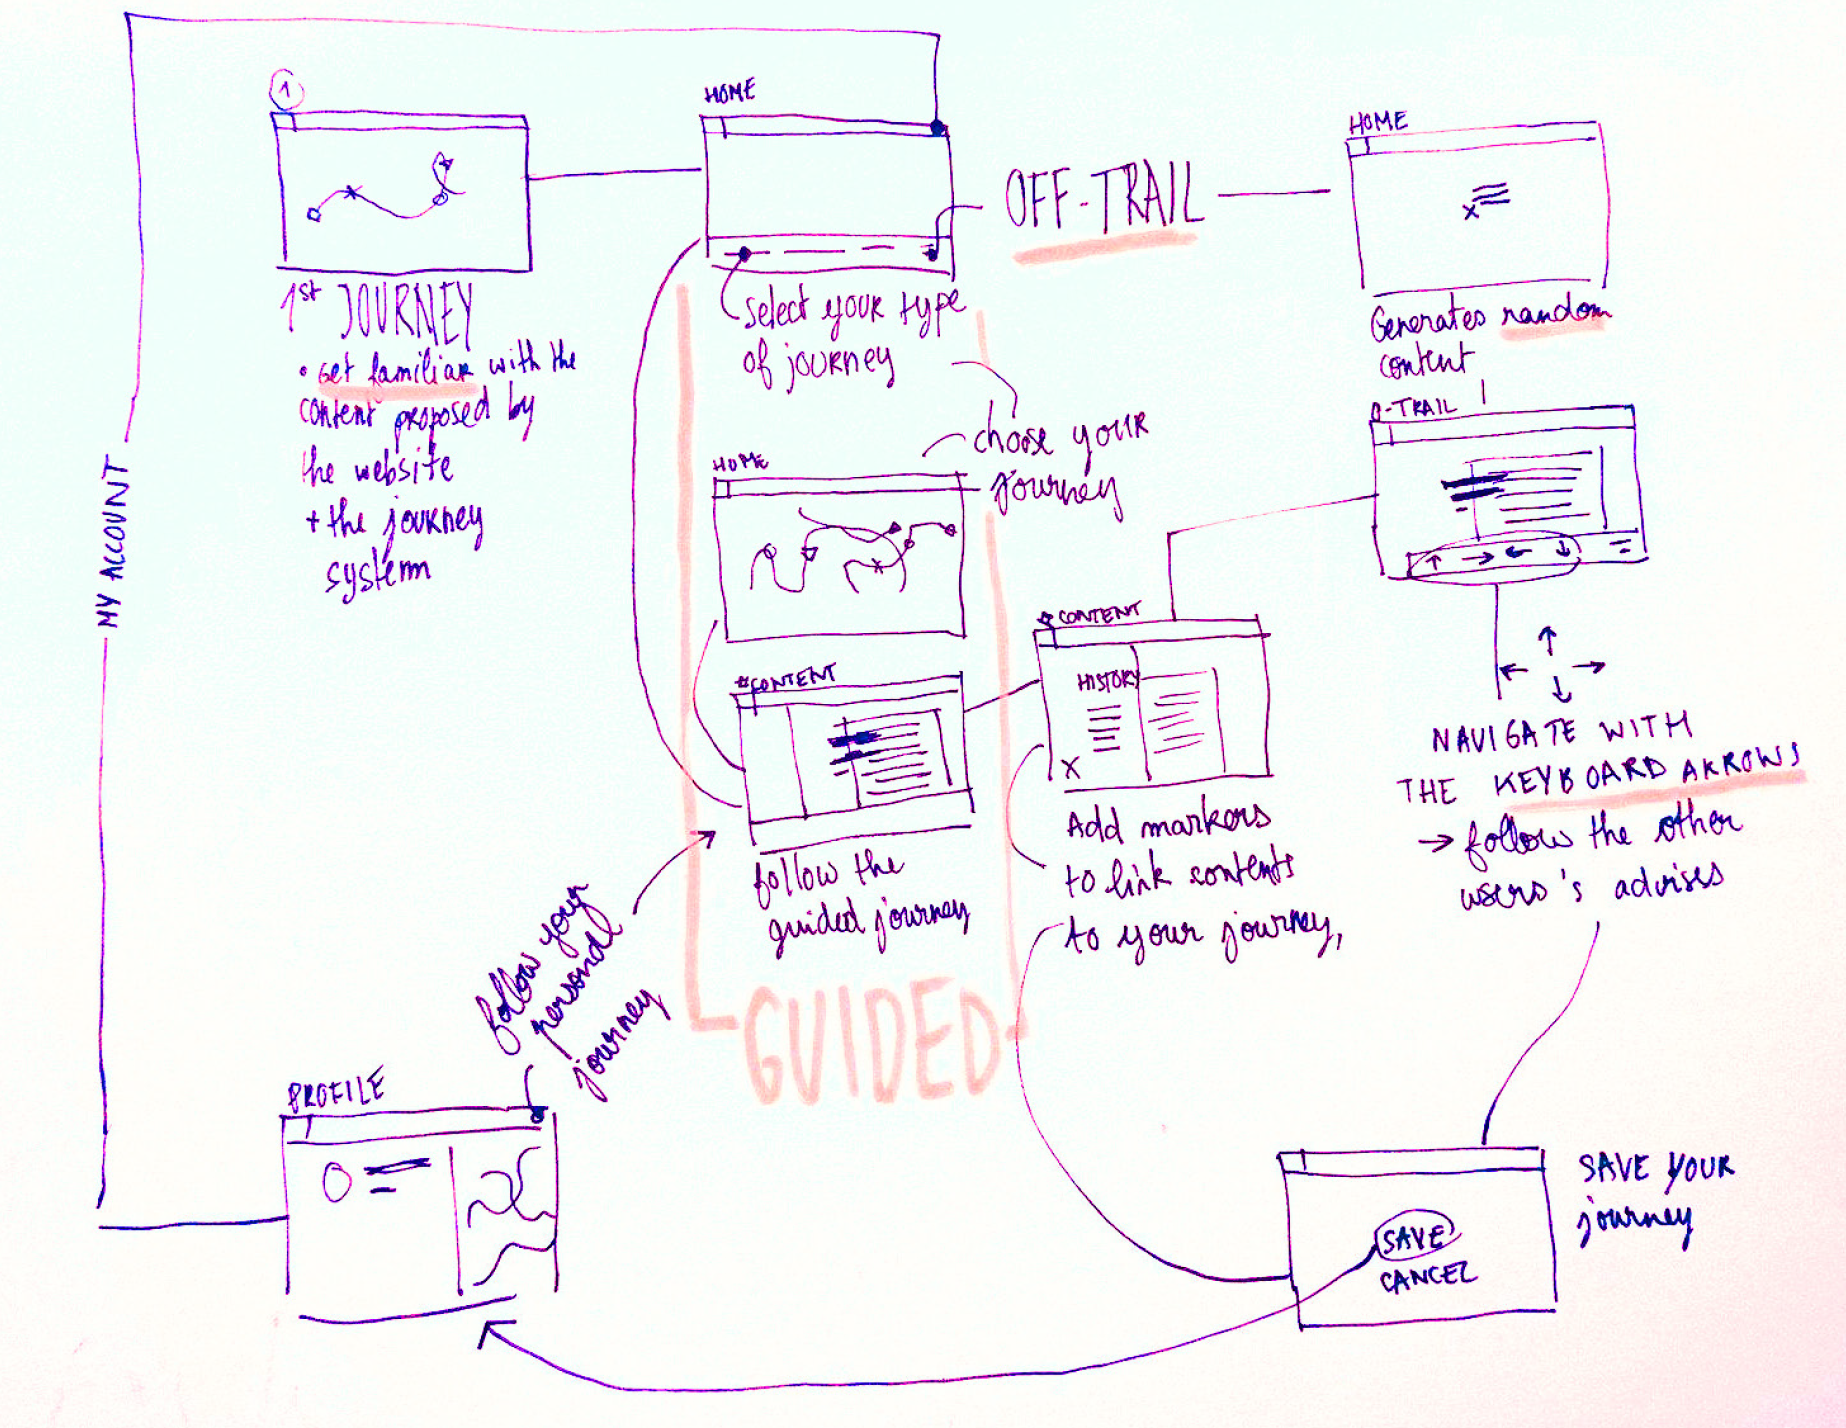 1
1st JOURNEY
• Get familiar with the
content proposed by
the website
+ the journey
system
HOME
Select your type
of journey
OFF-TRAIL
HOME
Generates random
content
choose your
journey
HOME
#CONTENT
follow the
guided journey
GUIDED
CONTENT
HISTORY
X
Add markers
to link contents
to your journey,
O-TRAIL
↑ → ← ↓
↑
← →
↓
NAVIGATE WITH
THE KEYBOARD ARROWS
→ follow the other
users's advises
MY ACCOUNT
follow your
personal
journey
PROFILE
SAVE
CANCEL
SAVE YOUR
journey